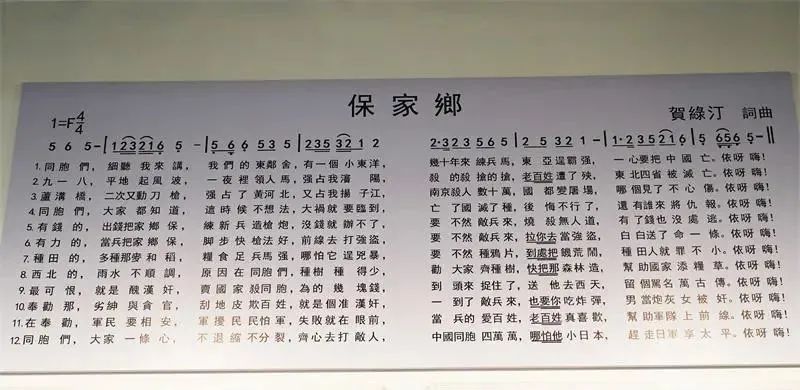 保家鄉
1=F 4/4
賀綠汀 詞曲
5 6 5 - | 1 2 3 2 1 6 5 - | 5 6 6 5 3 5 | 2 3 5 3 2 1 2
2·3 2 3 5 6 5 | 2 5 3 2 1 - | 1·2 3 5 2 1 6 | 5 6 5 6 5 - ‖
1.同胞們，細聽我來講，我們的東鄰舍，有一個小東洋，幾十年來練兵馬，東亞逞霸强，一心要把中國亡。依呀嗨！
2.九一八，平地起風波，一夜裡領人馬，强占瀋陽，殺的殺搶的搶，老百姓遭了殃，東北四省被滅亡。依呀嗨！
3.蘆溝橋，二次又動刀槍，强占了黃河北，又占揚子江，南京殺人數十萬，國都變屠場，哪個見了不心傷。依呀嗨！
4.同胞們，大家都知道，這時候不想法，大禍就要臨到，亡了國滅了種，後悔不行了，還有誰來將仇報。依呀嗨！
5.有錢的，出錢把家鄉保，練新兵造槍炮，沒錢就辦不了，要不然敵兵來，燒殺無人道，有了錢也沒處逃。依呀嗨！
6.有力的，當兵把家鄉保，脚步快槍法好，前線去打強盜，要不然敵兵來，拉你去當強盜，白白送了命一條。依呀嗨！
7.種田的，多種那麥和稻，糧食足兵馬强，哪怕它逞兇暴，要不然種鴉片，到處把饑荒鬧，種田人就罪不小。依呀嗨！
8.西北的，雨水不順調，原因在同胞們，種樹種得少，勸大家齊種樹，快把那森林造，幫助國家添糧草。依呀嗨！
9.最可恨，就是醜漢奸，賣國家殺同胞，為的幾塊錢，到頭來捉住了，送他去西天，留個罵名萬古傳。依呀嗨！
10.奉勸那，劣紳與貪官，刮地皮欺百姓，就是個准漢奸，一到了敵兵來，也要你吃炸彈，男當炮灰女被奸。依呀嗨！
11.在奉勸，軍民要相安，軍擾民民怕軍，失敗就在眼前，當兵的愛百姓，老百姓真喜歡，幫助軍隊上前線。依呀嗨！
12.同胞們，大家一條心，不退縮不分裂，齊心去打敵人，中國同胞四萬萬，哪怕他小日本，趕走日軍享太平。依呀嗨！